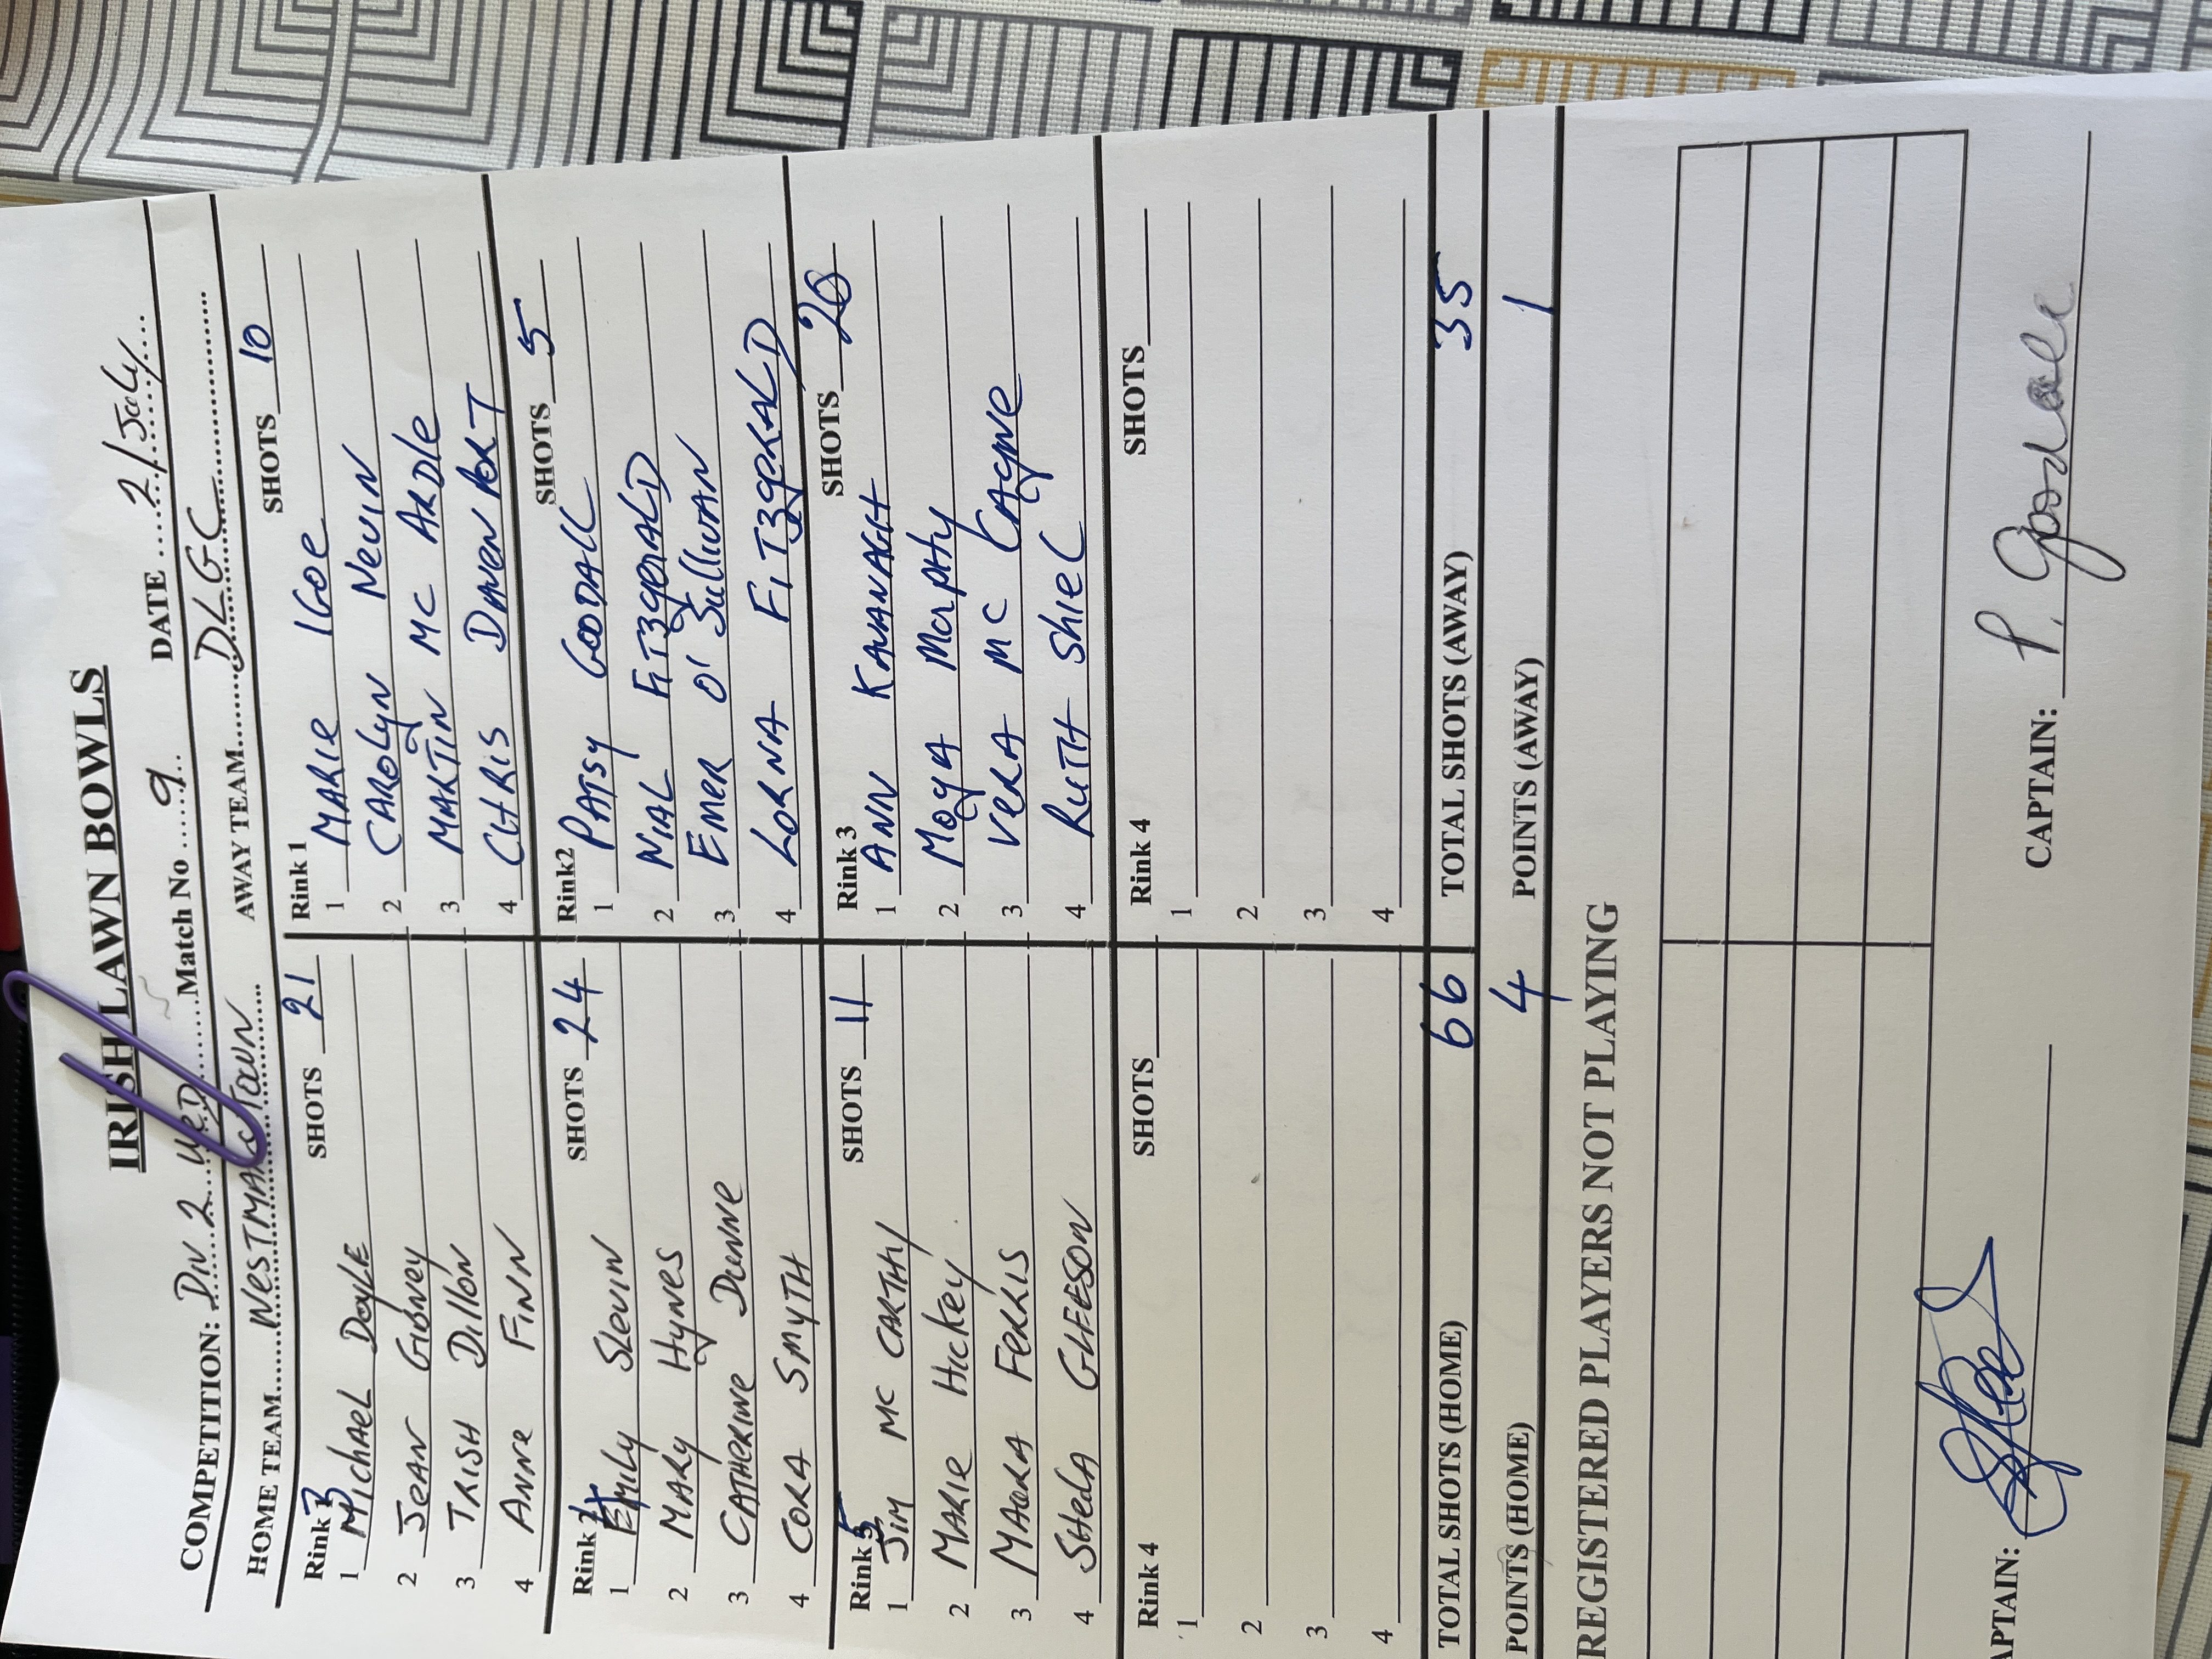 IRISH LAWN BOWLS
COMPETITION: DIV 2 WED Match No 9 DATE 21 July
HOME TEAM WESTMANSTOWN AWAY TEAM DLGC
Rink 3 SHOTS 21 Rink 1 SHOTS 10
1 Michael Doyle 1 MARIE IGOE
2 JEAN Gibney 2 CAROLYN NEVIN
3 TRISH Dillon 3 MARTIN MC ARDLE
4 ANNE FINN 4 CHRIS DAVENPORT
Rink 4 SHOTS 24 Rink2 SHOTS 5
1 EMILY SLEVIN 1 PATSY GOODALL
2 MARY HYNES 2 NIAL FITZGERALD
3 CATHERINE DUNNE 3 EMER O'SULLIVAN
4 CORA SMYTH 4 LORNA FITZGERALD
Rink 5 SHOTS 11 Rink 3 SHOTS 20
1 JIM MC CARTHY 1 ANN KAVANAGH
2 MARIE HICKEY 2 MOYA MURPHY
3 MAURA FERRIS 3 VERA MC
4 SHEILA GLEESON 4 RUTH SHIEL
Rink 4 SHOTS Rink 4 SHOTS
1 1
2 2
3 3
4 4
TOTAL SHOTS (HOME) 66 TOTAL SHOTS (AWAY) 35
POINTS (HOME) 4 POINTS (AWAY) 1
REGISTERED PLAYERS NOT PLAYING
APTAIN: CAPTAIN: P. Goodall